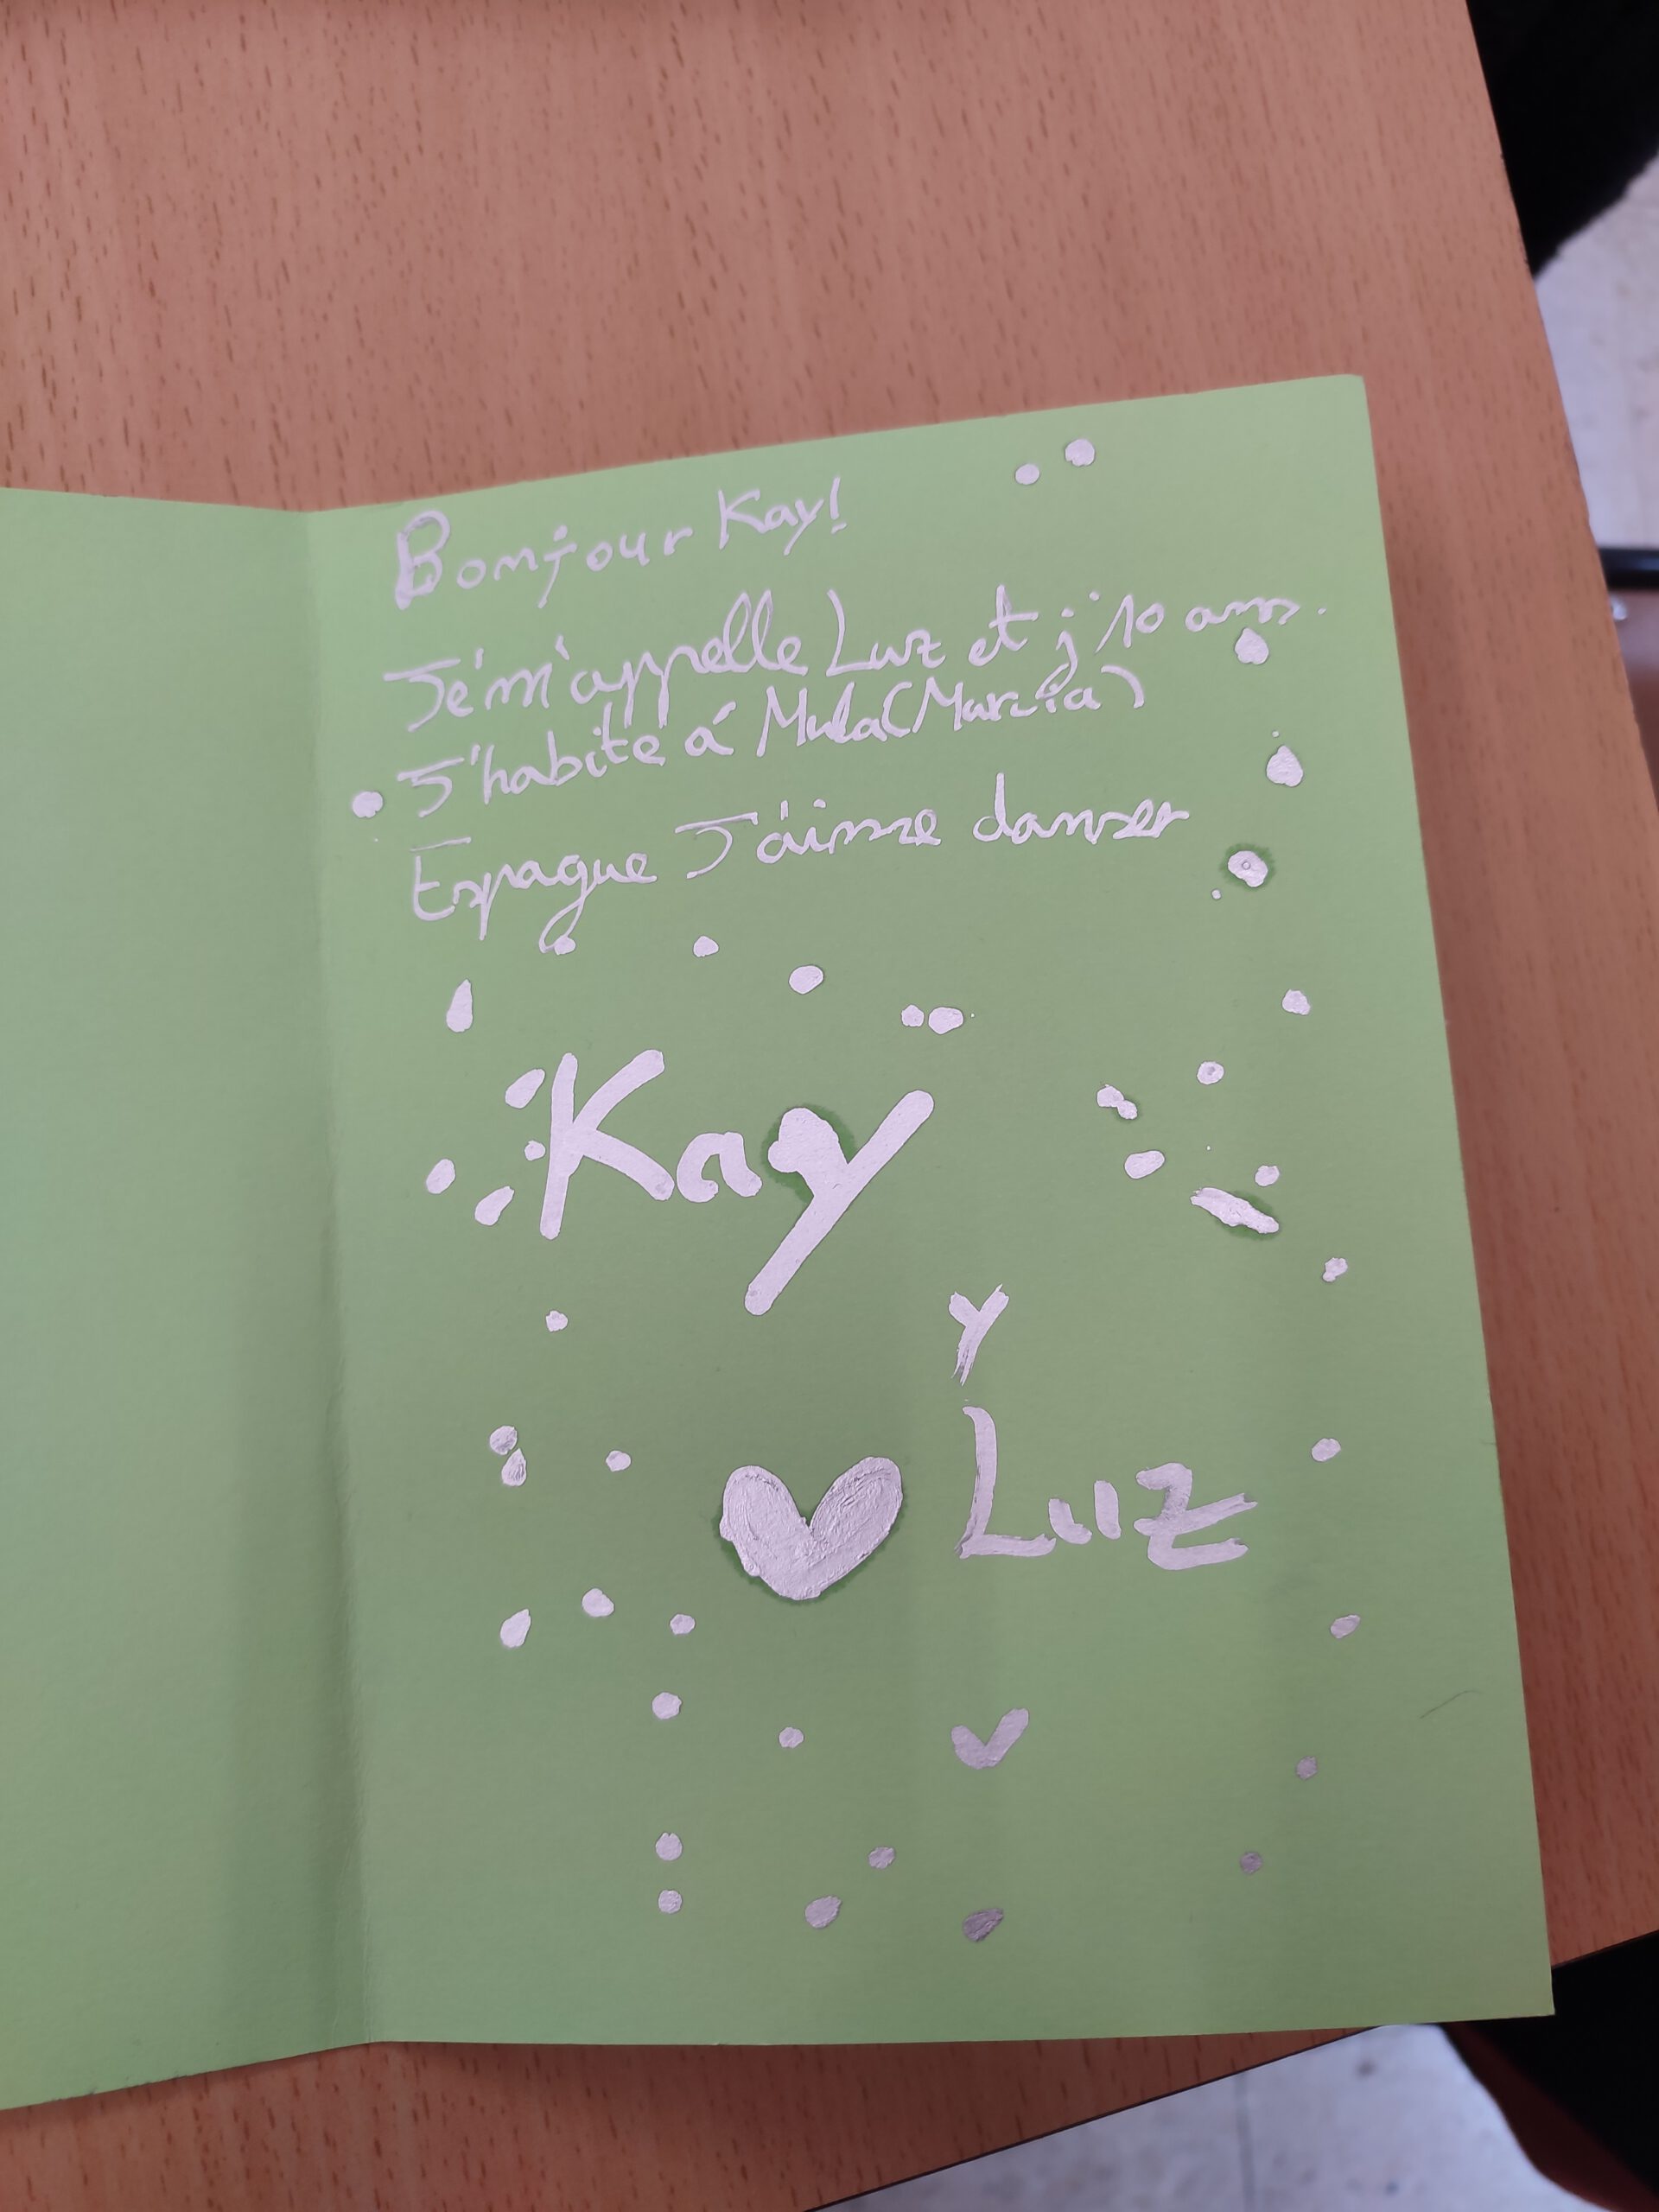 Bonjour Kay!
Je m'appelle Luz et j' 10 ans.
J'habite á Mula (Murcia)
Espague J'aime danser
Kay
y
Luz